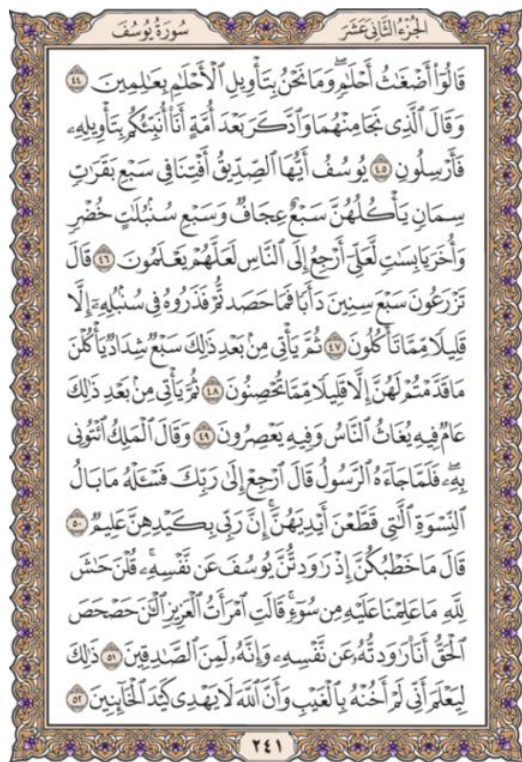 الجزء الثاني عشر
سورة يوسف
قَالُوٓا۟ أَضْغَٰثُ أَحْلَٰمٍۖ وَمَا نَحْنُ بِتَأْوِيلِ ٱلْأَحْلَٰمِ بِعَٰلِمِينَ ٤٤
وَقَالَ ٱلَّذِى نَجَا مِنْهُمَا وَٱدَّكَرَ بَعْدَ أُمَّةٍ أَنَا۠ أُنَبِّئُكُم بِتَأْوِيلِهِۦ
فَأَرْسِلُونِ ٤٥ يُوسُفُ أَيُّهَا ٱلصِّدِّيقُ أَفْتِنَا فِى سَبْعِ بَقَرَٰتٍ
سِمَانٍ يَأْكُلُهُنَّ سَبْعٌ عِجَافٌ وَسَبْعِ سُنۢبُلَٰتٍ خُضْرٍ
وَأُخَرَ يَابِسَٰتٍ لَّعَلِّىٓ أَرْجِعُ إِلَى ٱلنَّاسِ لَعَلَّهُمْ يَعْلَمُونَ ٤٦ قَالَ
تَزْرَعُونَ سَبْعَ سِنِينَ دَأَبًا فَمَا حَصَدتُّمْ فَذَرُوهُ فِى سُنۢبُلِهِۦٓ إِلَّا
قَلِيلًا مِّمَّا تَأْكُلُونَ ٤٧ ثُمَّ يَأْتِى مِنۢ بَعْدِ ذَٰلِكَ سَبْعٌ شِدَادٌ يَأْكُلْنَ
مَا قَدَّمْتُمْ لَهُنَّ إِلَّا قَلِيلًا مِّمَّا تُحْصِنُونَ ٤٨ ثُمَّ يَأْتِى مِنۢ بَعْدِ ذَٰلِكَ
عَامٌ فِيهِ يُغَاثُ ٱلنَّاسُ وَفِيهِ يَعْصِرُونَ ٤٩ وَقَالَ ٱلْمَلِكُ ٱئْتُونِى
بِهِۦۖ فَلَمَّا جَآءَهُ ٱلرَّسُولُ قَالَ ٱرْجِعْ إِلَىٰ رَبِّكَ فَسْـَٔلْهُ مَا بَالُ
ٱلنِّسْوَةِ ٱلَّٰتِى قَطَّعْنَ أَيْدِيَهُنَّۚ إِنَّ رَبِّى بِكَيْدِهِنَّ عَلِيمٌ ٥٠
قَالَ مَا خَطْبُكُنَّ إِذْ رَٰوَدتُّنَّ يُوسُفَ عَن نَّفْسِهِۦۚ قُلْنَ حَٰشَ
لِلَّهِ مَا عَلِمْنَا عَلَيْهِ مِن سُوٓءٍۚ قَالَتِ ٱمْرَأَتُ ٱلْعَزِيزِ ٱلْـَٰٔنَ حَصْحَصَ
ٱلْحَقُّ أَنَا۠ رَٰوَدتُّهُۥ عَن نَّفْسِهِۦ وَإِنَّهُۥ لَمِنَ ٱلصَّٰدِقِينَ ٥١ ذَٰلِكَ
لِيَعْلَمَ أَنِّى لَمْ أَخُنْهُ بِٱلْغَيْبِ وَأَنَّ ٱللَّهَ لَا يَهْدِى كَيْدَ ٱلْخَآئِنِينَ ٥٢
٢٤١